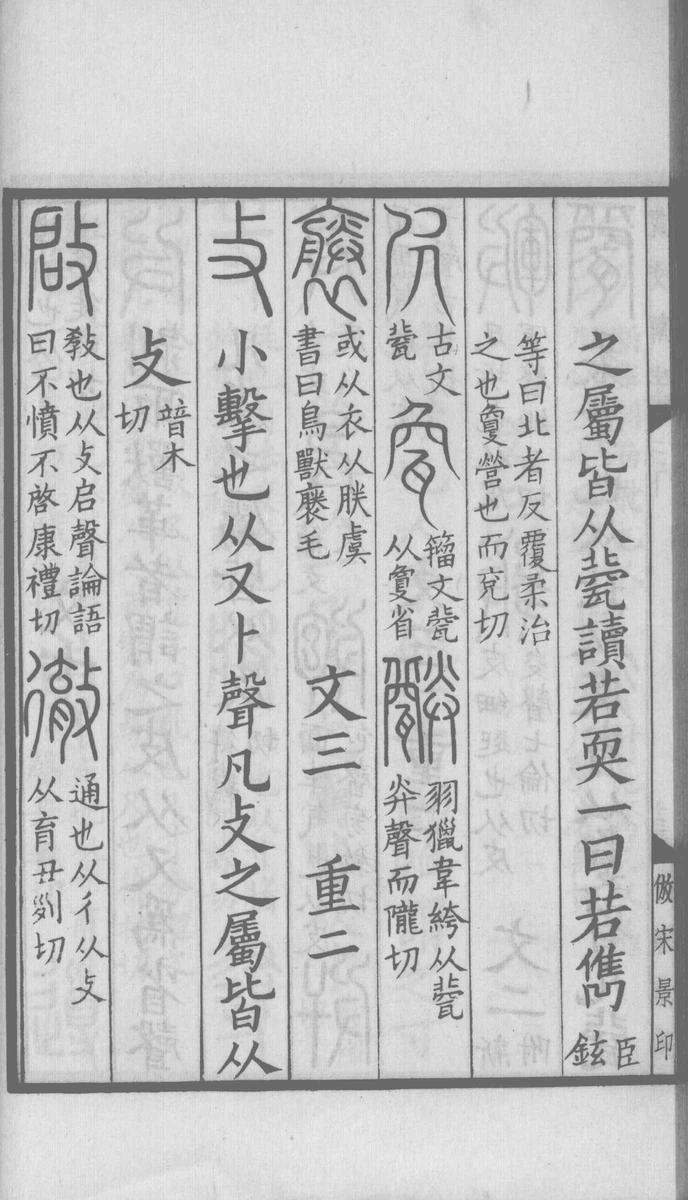 之屬皆从㼱讀若耎一曰若雋臣鉉
等曰北者反覆柔治之也夐營也而兖切
古文㼱 籀文㼱从夐省 羽獵韋絝从㼱灷聲而隴切
或从衣从朕虞書曰鳥獸襃毛 文三 重二
攴 小擊也从又卜聲凡攴之屬皆从
攴普木切
啟 敎也从攴启聲論語曰不憤不啓康禮切 徹 通也从彳从攴从育丑列切
倣宋景印